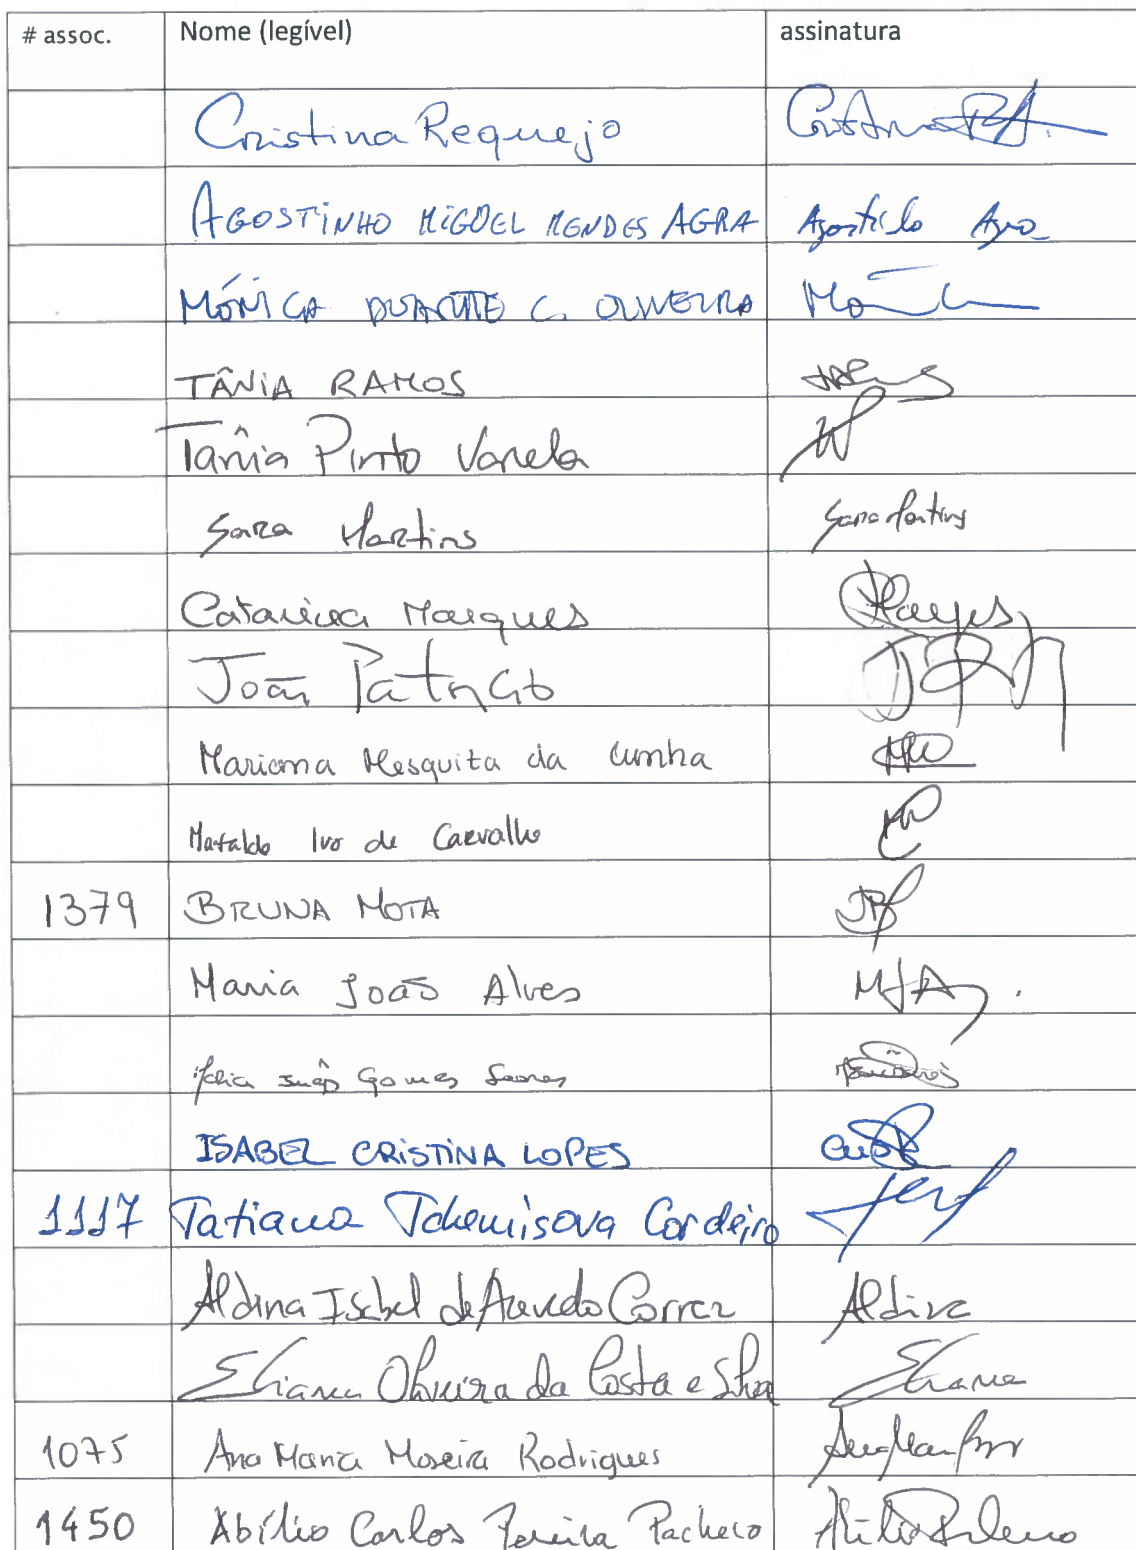 # assoc. Nome (legível) assinatura
Cristina Requejo
AGOSTINHO MIGUEL MENDES AGRA Agostinho Agra
MÓNICA DUARTE C. OLIVEIRA
TÂNIA RAMOS
Tânia Pinto Varela
Sara Martins Sara Martins
Catarina Marques Marques
João Patrício
Mariana Mesquita da Cunha
Mafalda Ivo de Carvalho
1379 BRUNA MOTA
Maria João Alves MJA
Inês Gomes Soares
ISABEL CRISTINA LOPES
1117 Tatiana Tchemisova Cordeiro
Aldina Isabel de Azevedo Correia Aldina
Eliana Oliveira da Costa e Silva Eliana
1075 Ana Maria Moreira Rodrigues
1450 Abílio Carlos Pereira Pacheco